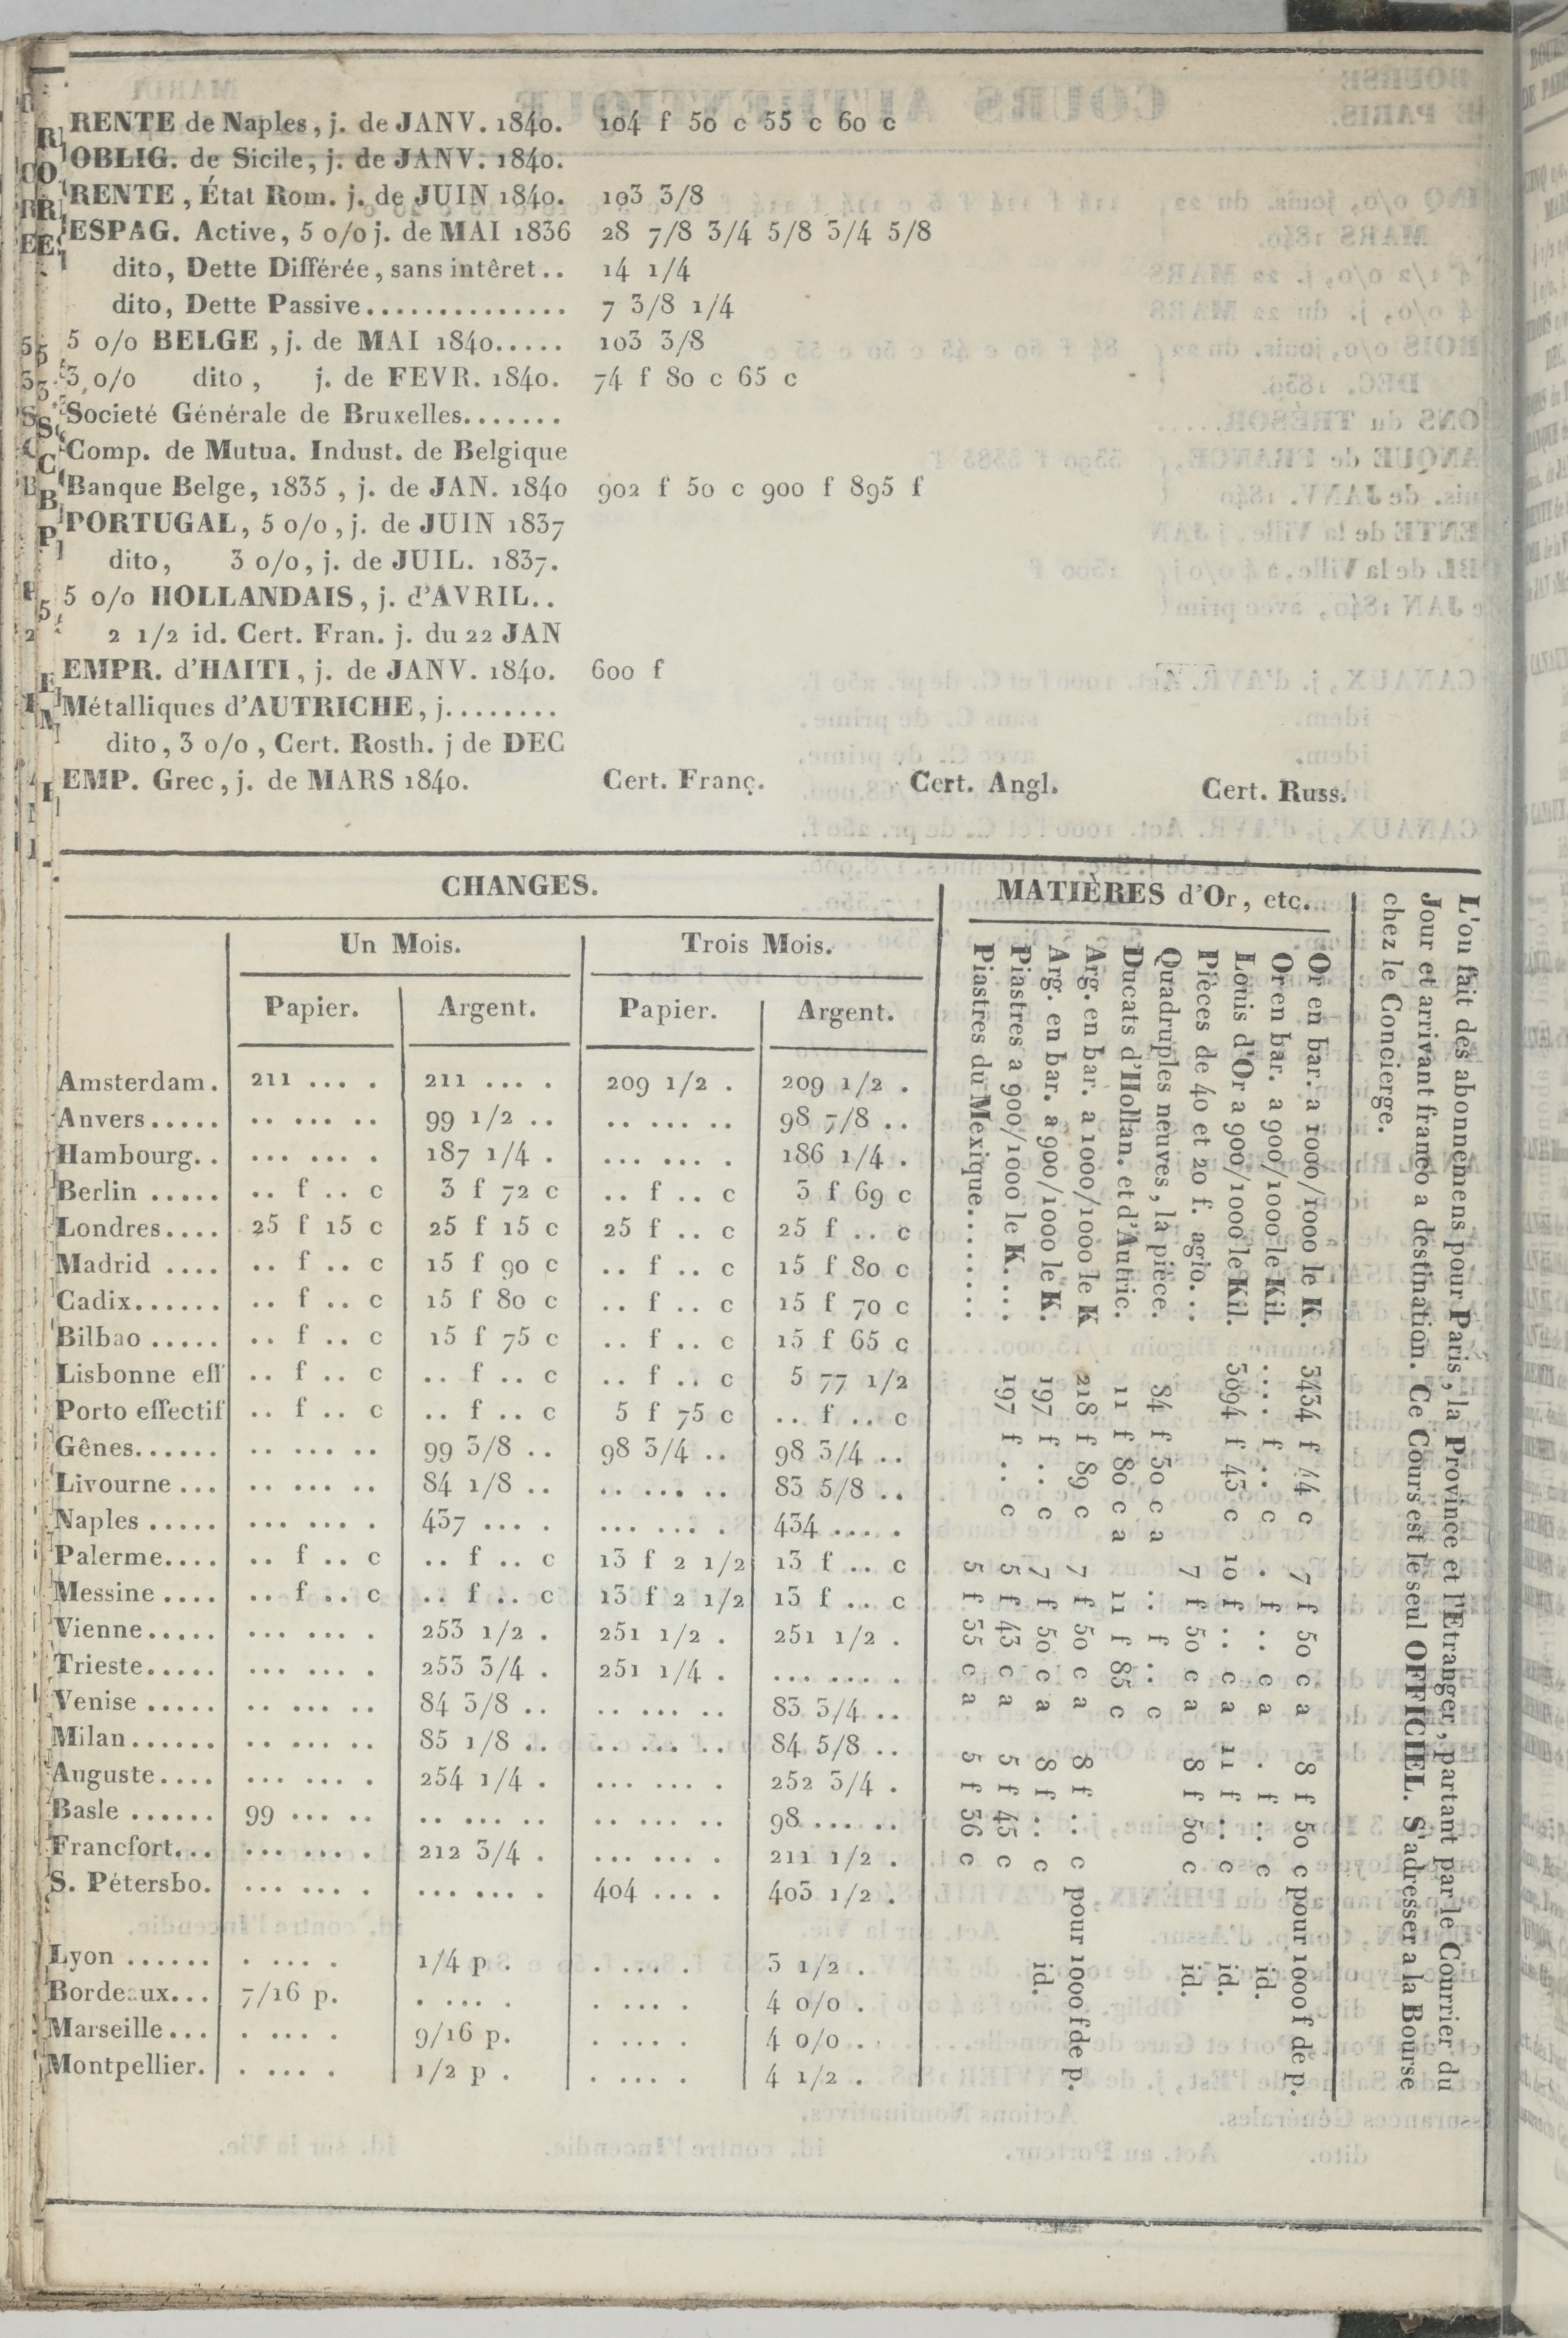 RENTE de Naples, j. de JANV. 1840. 104 f 50 c 55 c 60 c
OBLIG. de Sicile, j. de JANV. 1840.
RENTE, État Rom. j. de JUIN 1840. 103 3/8
ESPAG. Active, 5 o/o j. de MAI 1836 28 7/8 3/4 5/8 3/4 5/8
dito, Dette Différée, sans intêret.. 14 1/4
dito, Dette Passive.............. 7 3/8 1/4
5 o/o BELGE, j. de MAI 1840..... 103 3/8
3 o/o dito, j. de FEVR. 1840. 74 f 80 c 65 c
Societé Générale de Bruxelles.......
Comp. de Mutua. Indust. de Belgique
Banque Belge, 1835, j. de JAN. 1840 902 f 50 c 900 f 895 f
PORTUGAL, 5 o/o, j. de JUIN 1837
dito, 3 o/o, j. de JUIL. 1837.
5 o/o HOLLANDAIS, j. d'AVRIL..
2 1/2 id. Cert. Fran. j. du 22 JAN
EMPR. d'HAITI, j. de JANV. 1840. 600 f
Métalliques d'AUTRICHE, j........
dito, 3 o/o, Cert. Rosth. j de DEC
EMP. Grec, j. de MARS 1840. Cert. Franç. Cert. Angl. Cert. Russ.
CHANGES.
Un Mois. Trois Mois.
Papier. Argent. Papier. Argent.
Amsterdam. 211 .... 211 .... 209 1/2 . 209 1/2 .
Anvers..... .. ... .. 99 1/2 .. .. ... .. 98 7/8 ..
Hambourg.. ... ... . 187 1/4 . ... ... . 186 1/4 .
Berlin ..... .. f .. c 3 f 72 c .. f .. c 3 f 69 c
Londres.... 25 f 15 c 25 f 15 c 25 f .. c 25 f .. c
Madrid .... .. f .. c 15 f 90 c .. f .. c 15 f 80 c
Cadix...... .. f .. c 15 f 80 c .. f .. c 15 f 70 c
Bilbao ..... .. f .. c 15 f 75 c .. f .. c 15 f 65 c
Lisbonne eff .. f .. c .. f .. c .. f .. c 5 77 1/2
Porto effectif .. f .. c .. f .. c 5 f 75 c .. f .. c
Gênes...... .. ... .. 99 3/8 .. 98 3/4 .. 98 3/4 ..
Livourne ... .. ... .. 84 1/8 .. .. ... .. 83 5/8 ..
Naples ..... ... ... . 437 .... ... ... . 434 .....
Palerme.... .. f .. c .. f .. c 13 f 2 1/2 13 f .. c
Messine .... .. f .. c .. f .. c 13 f 2 1/2 13 f .. c
Vienne..... ... ... . 253 1/2 . 251 1/2 . 251 1/2 .
Trieste..... ... ... . 253 3/4 . 251 1/4 . ... ... .
Venise ..... .. ... .. 84 3/8 .. .. ... .. 83 3/4 ..
Milan...... .. ... .. 85 1/8 .. .. ... .. 84 5/8 ..
Auguste.... ... ... . 254 1/4 . ... ... . 252 3/4 .
Basle ...... 99 ... .. .. ... .. .. ... .. 98 ... ..
Francfort... ... ... . 212 3/4 . ... ... . 211 1/2 .
S. Pétersbo. ... ... . ... ... . 404 .... 403 1/2 .
Lyon ...... . ... . 1/4 p . . ... . 3 1/2 .
Bordeaux... 7/16 p. . ... . . ... . 4 o/o .
Marseille... . ... . 9/16 p. . ... . 4 o/o .
Montpellier. . ... . 1/2 p . . ... . 4 1/2 .
MATIÈRES d'Or, etc.
Or en bar. a 1000/1000 le K. 3434 f 44 c 7 f 50 c a 8 f 50 c pour 1000 f de p.
Or en bar. a 900/1000 le Kil. ... f .. c . f .. c a . f .. c id.
Louis d'Or a 900/1000 le Kil. 3094 f 43 c 10 f .. c a 11 f .. c id.
Pièces de 40 et 20 f. agio... 7 f 50 c a 8 f 50 c id.
Quadruples neuves, la pièce. 84 f 50 c a .. f .. c
Ducats d'Hollan. et d'Autric. 11 f 80 c a 11 f 85 c
Arg. en bar. a 1000/1000 le K 218 f 89 c 7 f 50 c a 8 f .. c pour 1000 f de p.
Arg. en bar. a 900/1000 le K. 197 f .. c 7 f 50 c a 8 f .. c id.
Piastres a 900/1000 le K.... 197 f .. c 5 f 43 c a 5 f 45 c
Piastres du Mexique........ 5 f 55 c a 5 f 56 c
L'on fait des abonnemens pour Paris, la Province et l'Etranger, partant par le Courrier du
Jour et arrivant franco a destination. Ce Cours est le seul OFFICIEL. S'adresser a la Bourse
chez le Concierge.